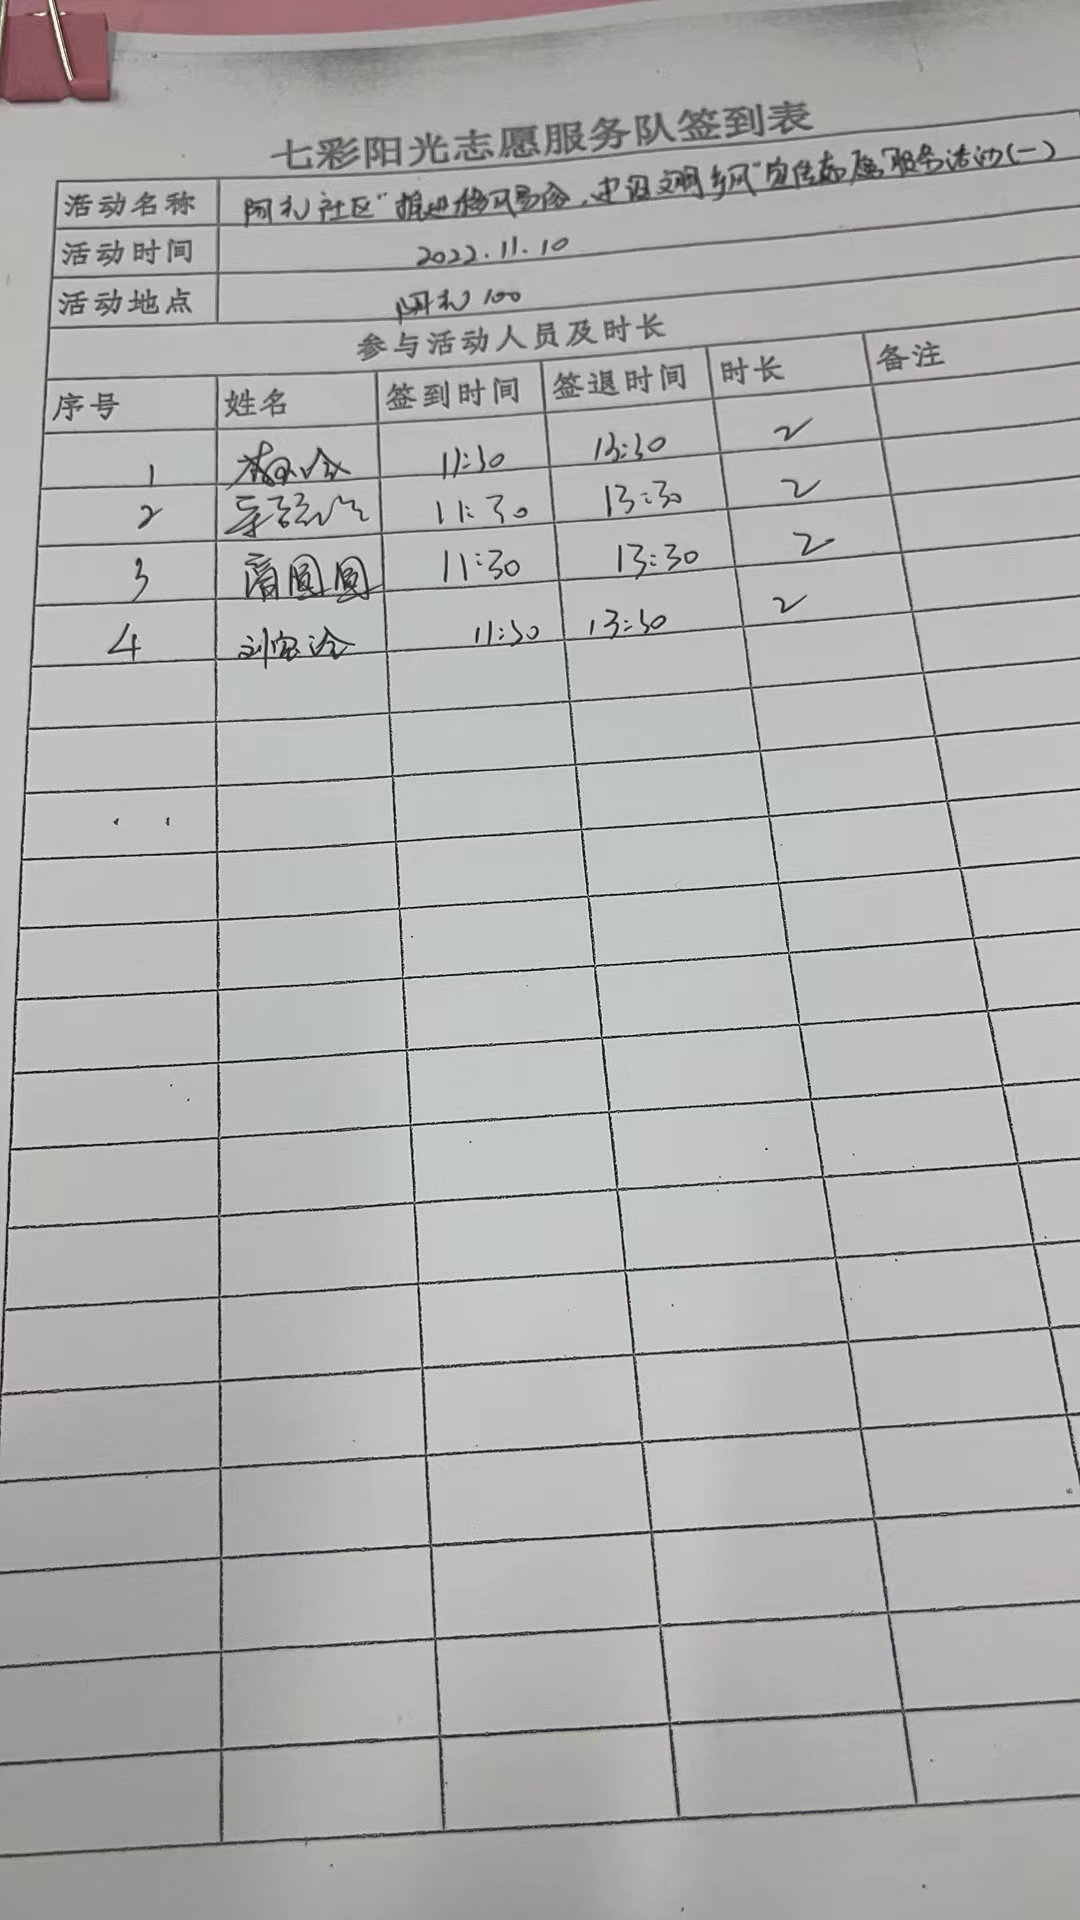 七彩阳光志愿服务队签到表
活动名称 阿礼社区"推进移风易俗,建设文明乡风"宣传志愿服务活动(一)
活动时间 2022.11.10
活动地点 阿礼100
参与活动人员及时长
序号 姓名 签到时间 签退时间 时长 备注
1 11:30 13:30 2
2 11:30 13:30 2
3 圆圆 11:30 13:30 2
4 刘 11:30 13:30 2